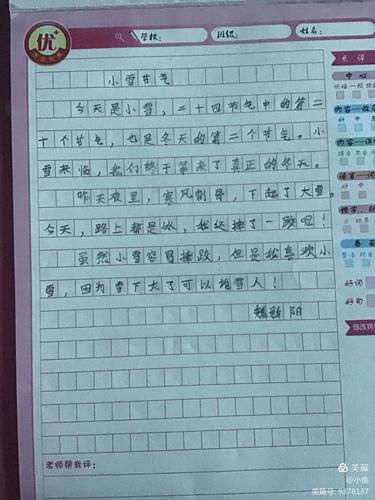 优
学校：
班级：
姓名：
点评
中心
小雪节气
今天是小雪，二十四节气中的第二
十个节气，也是冬天的第二个节气。小
雪来临，我们终于等来了真正的冬天。
昨天夜里，寒风刺骨，下起了大雪。
今天，路上都是冰，我还摔了一跤呢！
虽然小雪容易摔跤，但是我喜欢小
雪，因为雪下大了可以堆雪人！
阳
好词
好句
老师帮我评：
美篇
@小鱼
美篇号：9378137